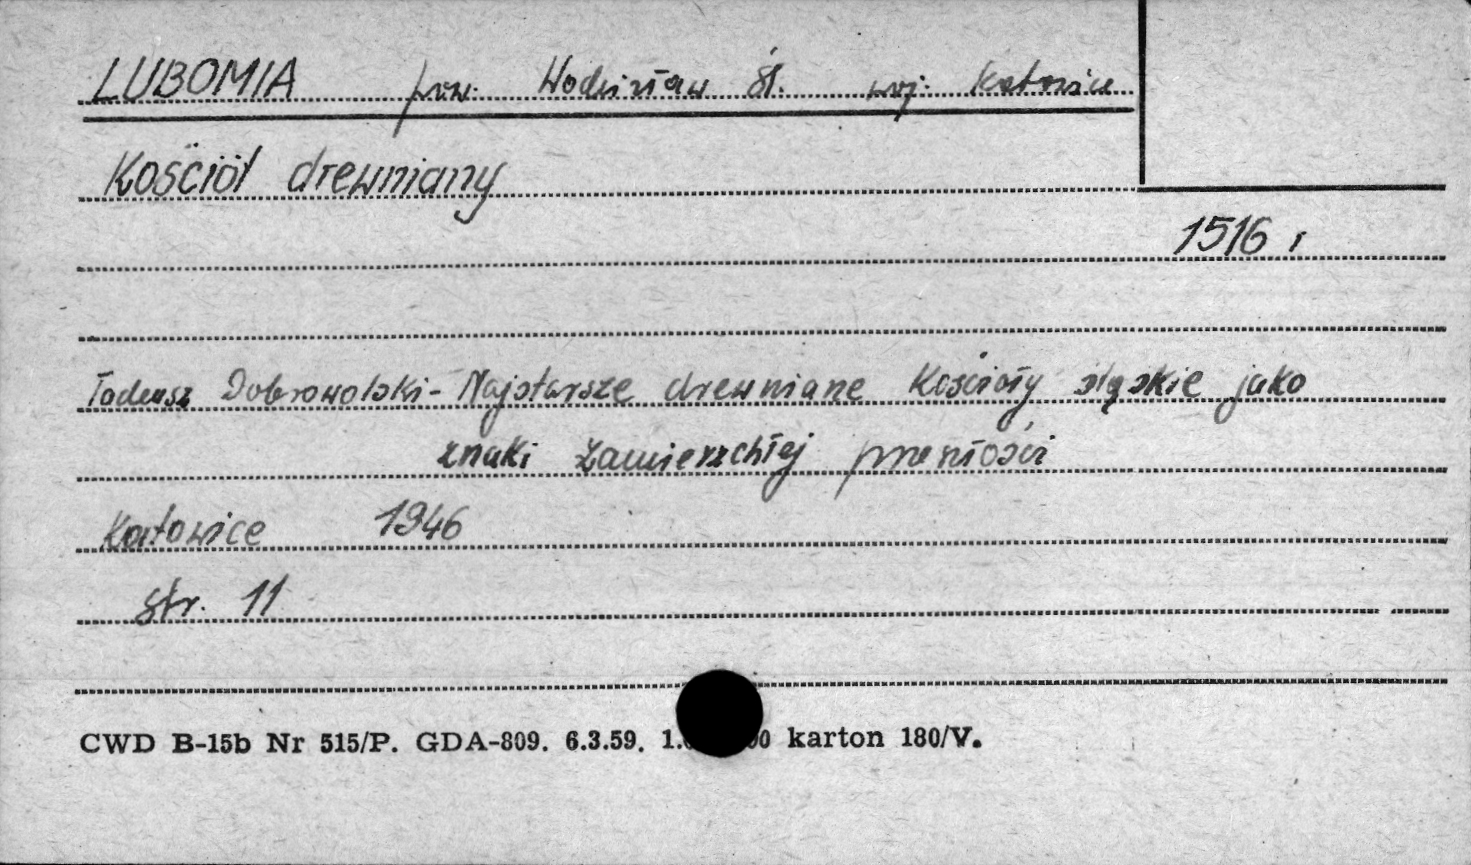 LUBOMIA pow. Wodzisław Śl. woj. Katowice
Kościół drewniany
1516 r
Tadeusz Dobrowolski - Najstarsze drewniane Kościoły śląskie jako
znaki zamierzchłej przeszłości
Katowice 1946
str. 11
CWD B-15b Nr 515/P. GDA-809. 6.3.59. karton 180/V.